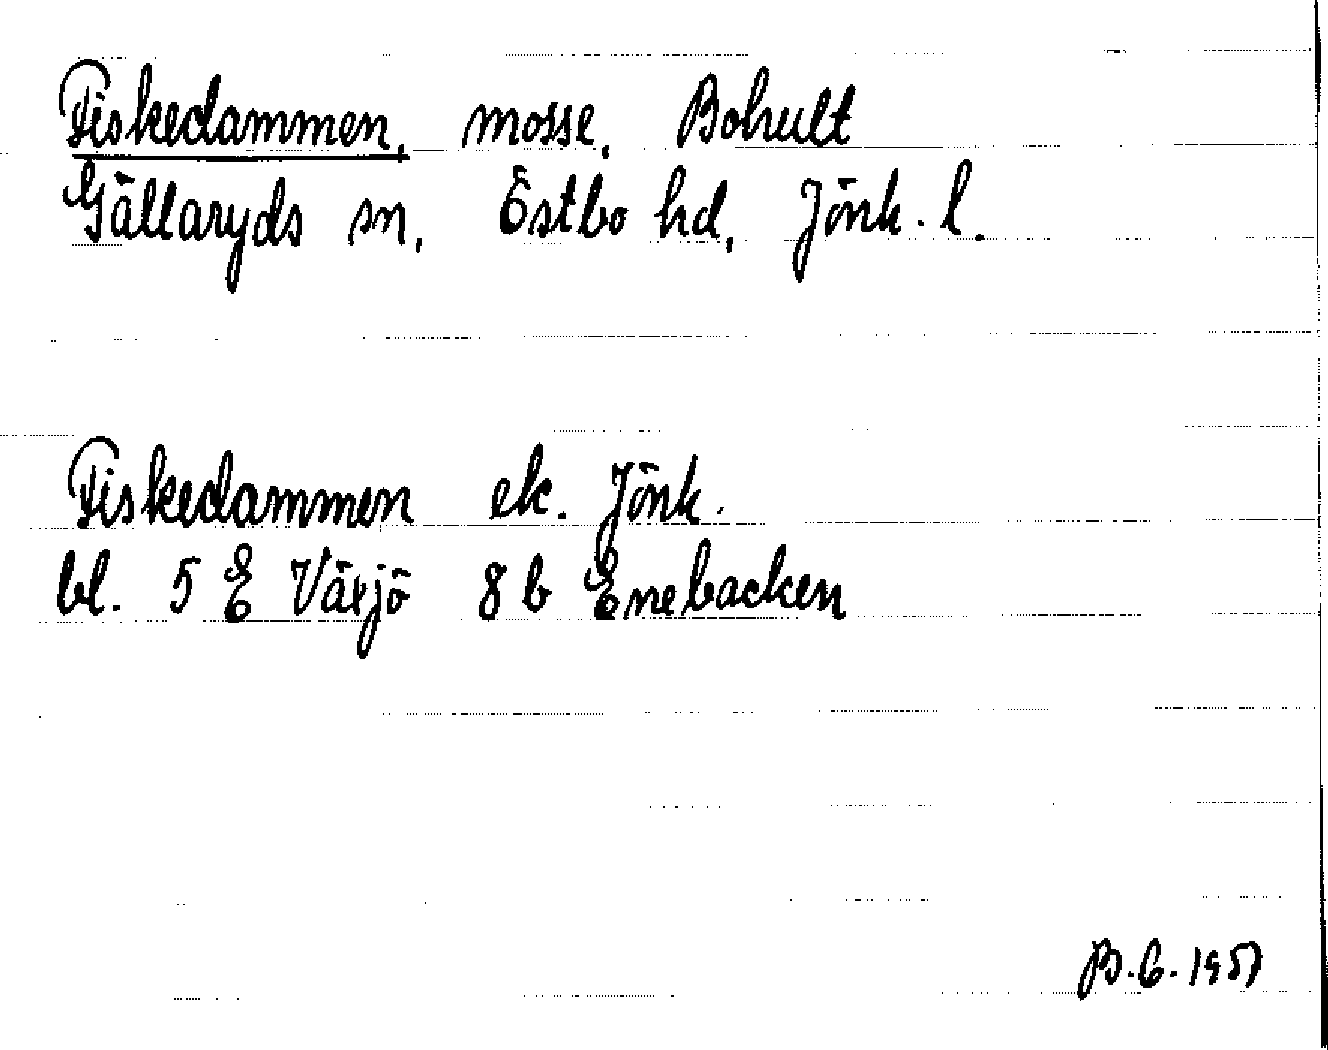 Fiskedammen, mosse, Bohult
Gällaryds sn, Östbo hd, Jönk. l.
Fiskedammen ek. Jönk.
bl. 5 E Växjö 8 b Enebacken
B.G. 1957